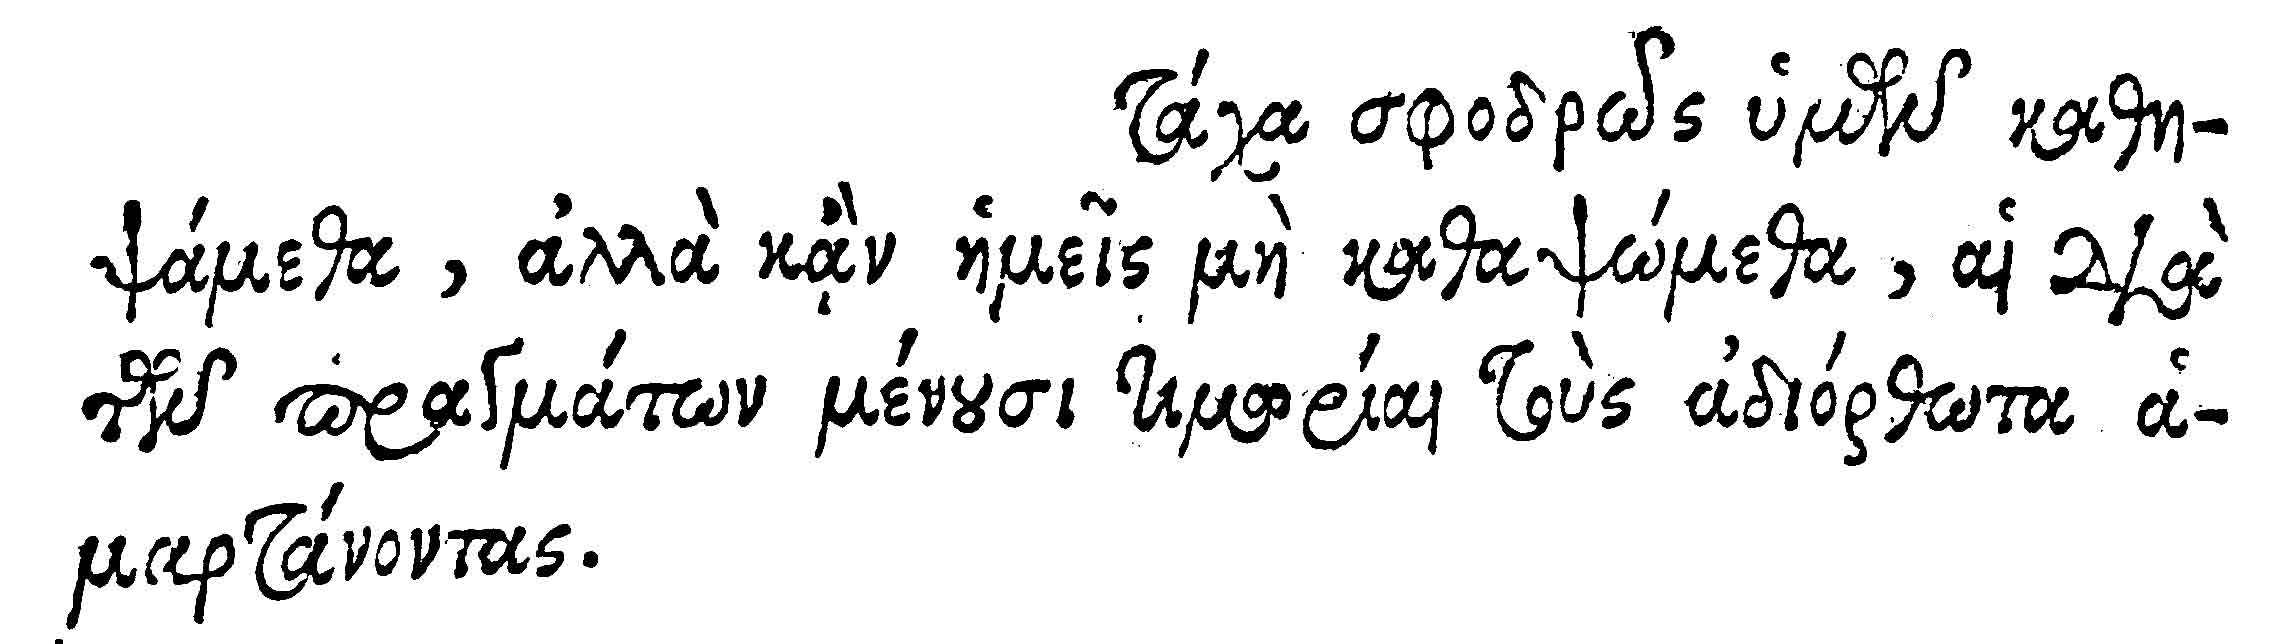 Τάχα σφοδρῶς ὑμῶν καθη-
ψάμεθα, ἀλλὰ κἂν ἡμεῖς μὴ καθαψώμεθα, αἱ διὰ
τῶν πραγμάτων μένουσι τιμωρίαι τοὺς ἀδιόρθωτα ἁ-
μαρτάνοντας.